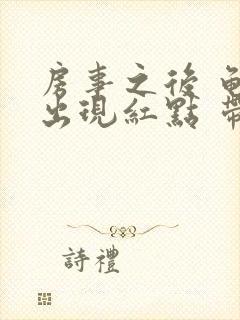 房事之後
出現紅點
詩禮